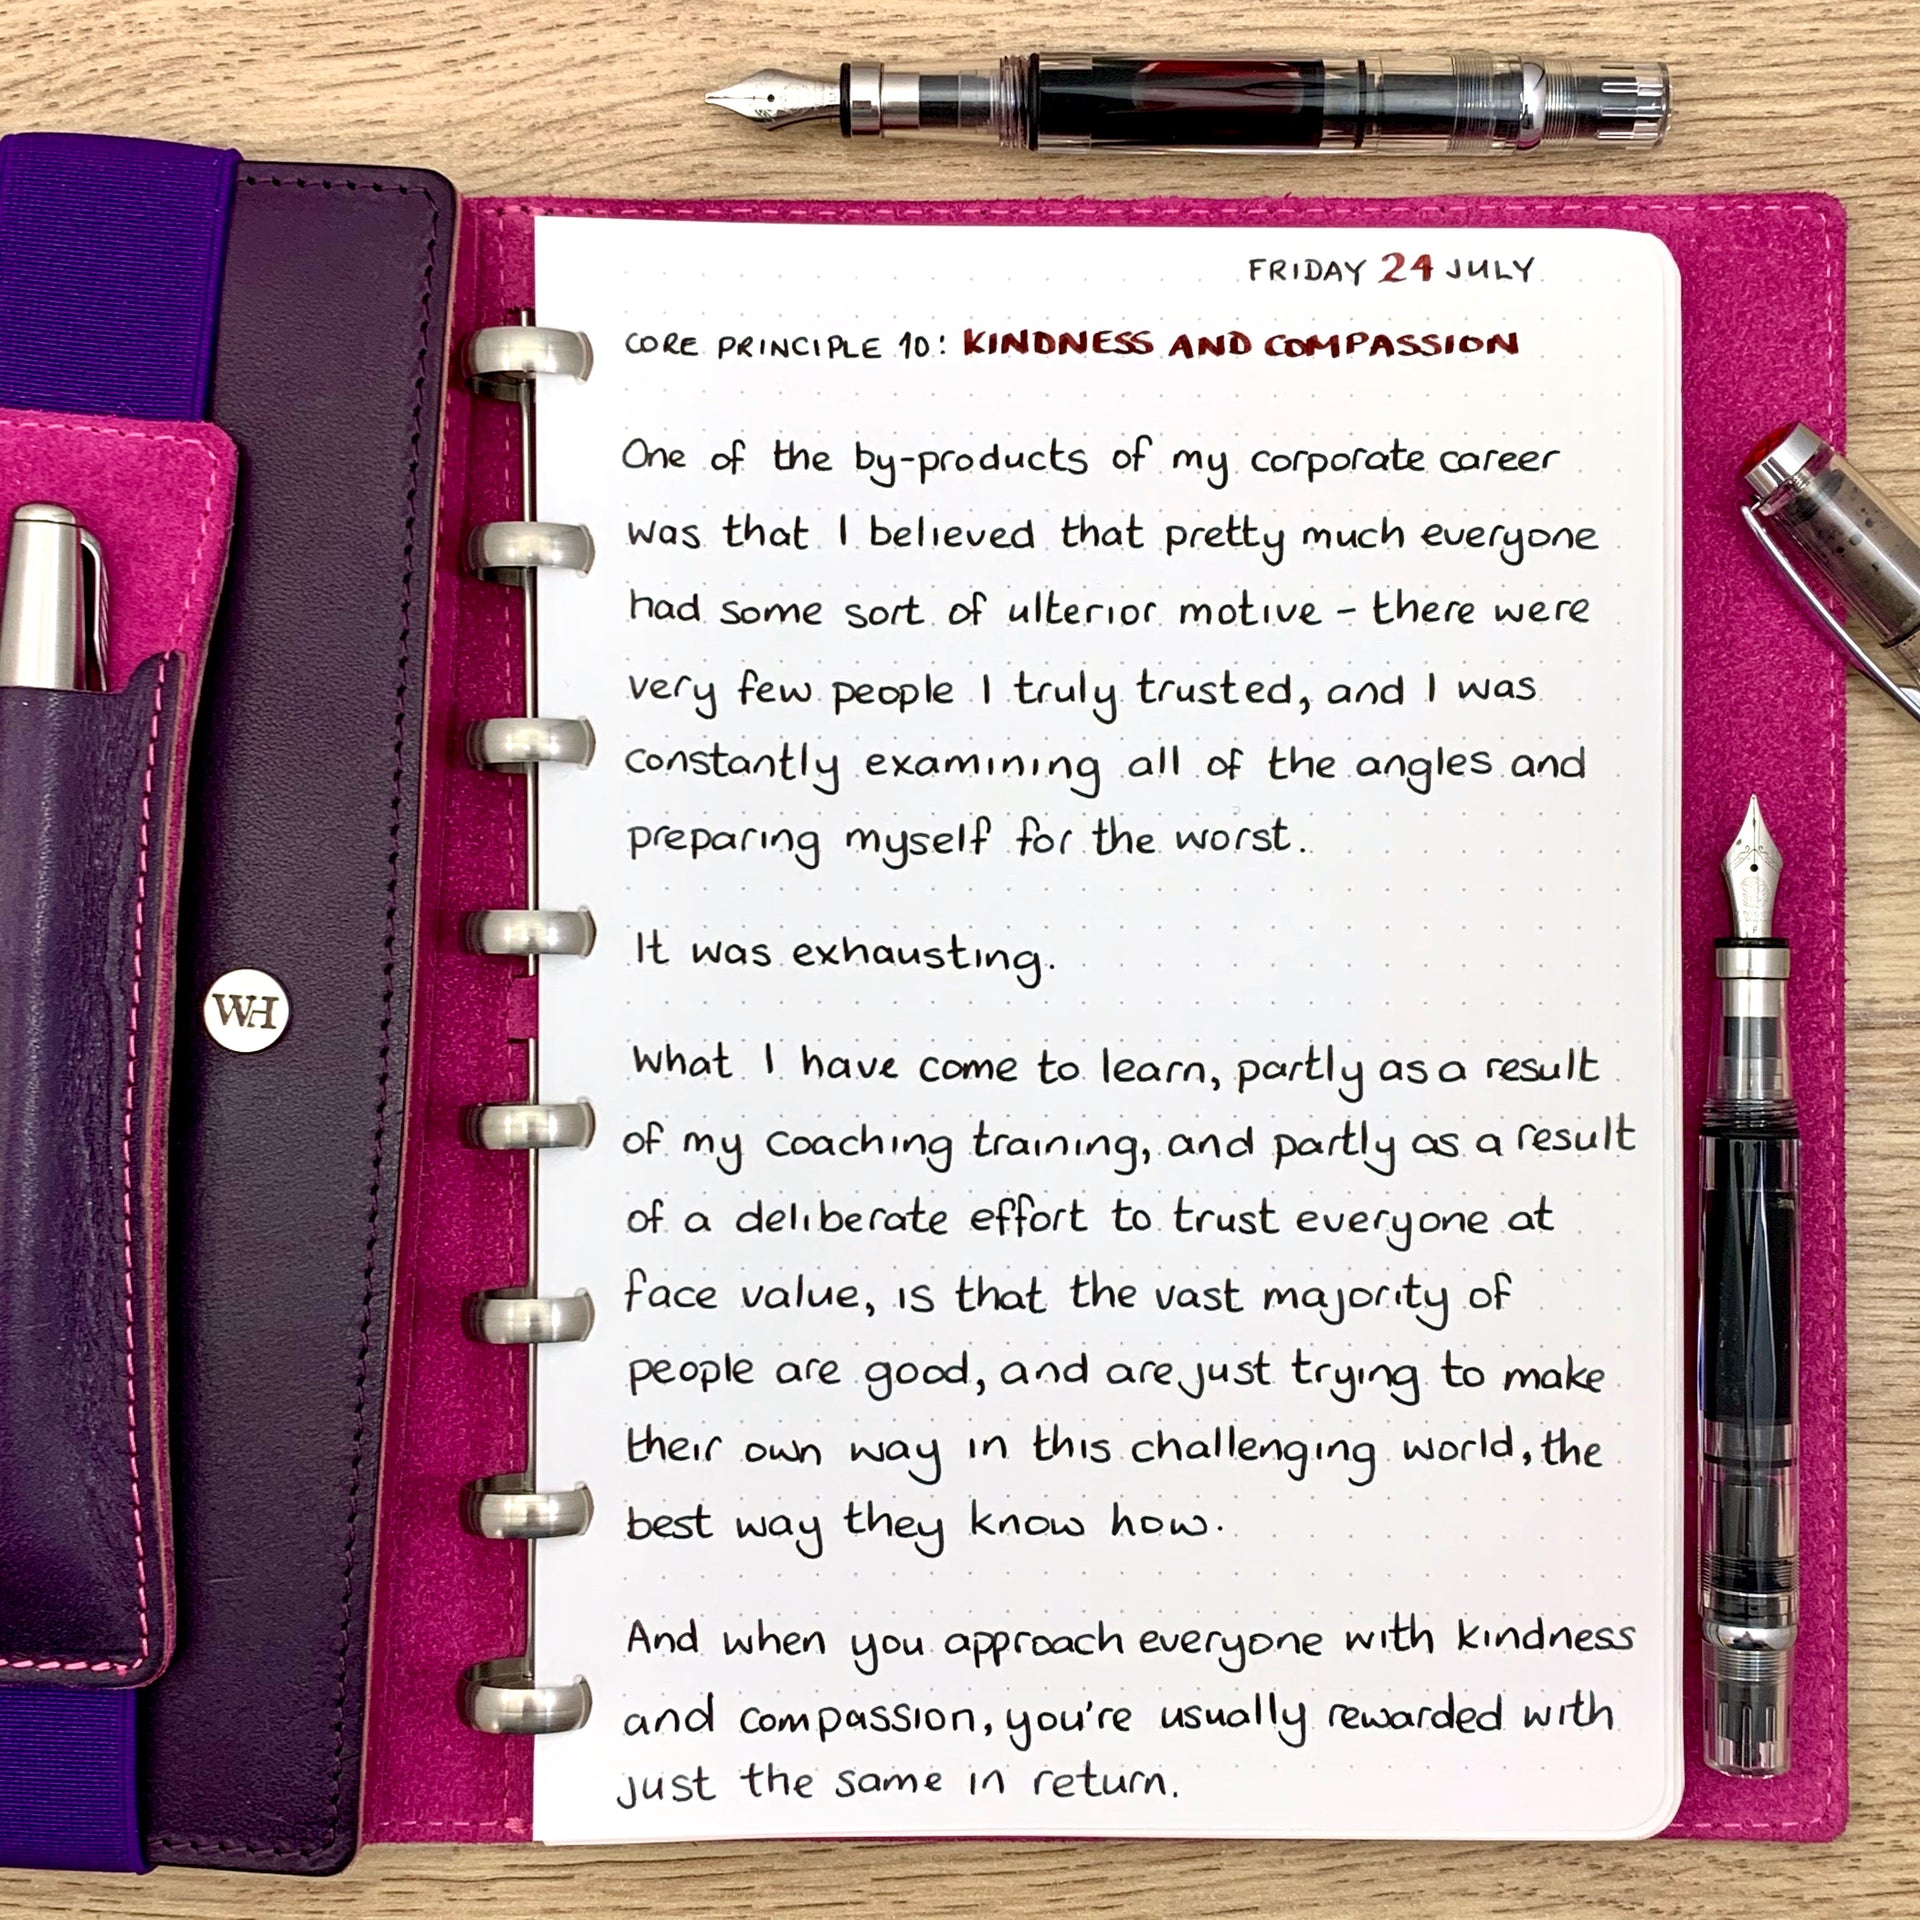 FRIDAY 24 JULY
CORE PRINCIPLE 10: KINDNESS AND COMPASSION
One of the by-products of my corporate career
was that I believed that pretty much everyone
had some sort of ulterior motive – there were
very few people I truly trusted, and I was
constantly examining all of the angles and
preparing myself for the worst.
It was exhausting.
What I have come to learn, partly as a result
of my coaching training, and partly as a result
of a deliberate effort to trust everyone at
face value, is that the vast majority of
people are good, and are just trying to make
their own way in this challenging world, the
best way they know how.
And when you approach everyone with kindness
and compassion, you're usually rewarded with
just the same in return.
WH